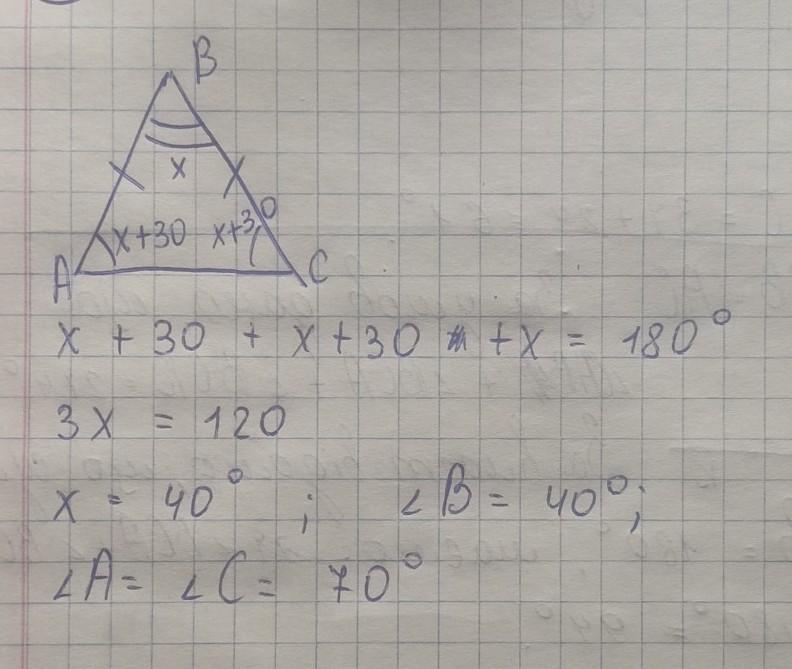 B
x
x+30 x+30
A C
x + 30 + x + 30 + x = 180°
3x = 120
x = 40° ; ∠B = 40°;
∠A = ∠C = 70°